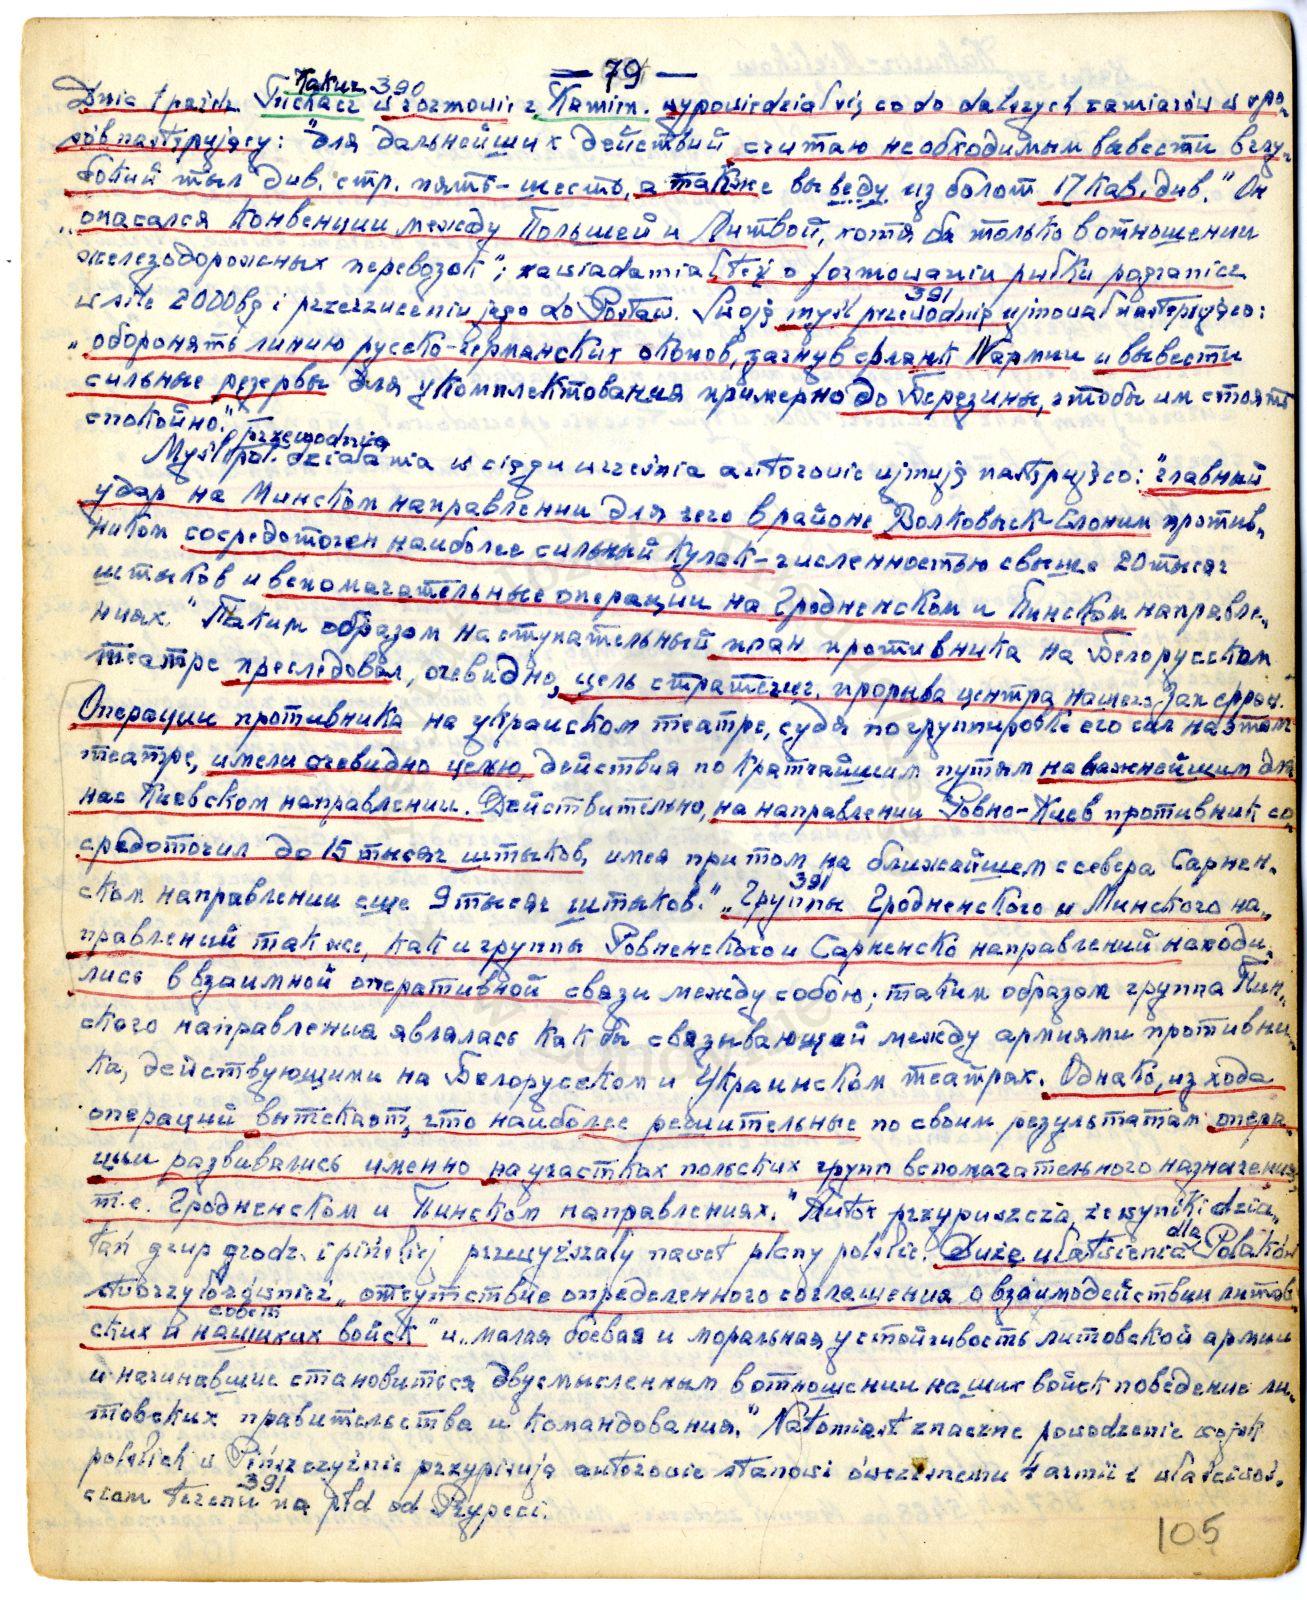 = 79 —
Kakur. 390
Dnia 1 paźdz. Tuchacz. w rozmowie z Kamien. wypowiedział się co do dalszych zamiarów w spo-
sób następujący: "для дальнейших действий считаю необходимым вывести в глу-
бокий тыл див. стр. пять-шесть, а также выведу из болот 17 кав. див." Он
"опасался конвенции между Польшей и Литвой, хотя бы только в отношении
железодорожных перевозок"; zawiadamiał też o formowaniu pułku pogranicz
w sile 2000 bg i przerzuceniu jego do Postaw. Swoją myśl przewodnią ujmował następująco: 391
"оборонять линию русско-германских окопов, загнув фланг IV армии и вывести
сильные резервы для укомплектования примерно до Березины, чтобы им стоять
спокойно."
Myśl przewodnią pol. działania w ciągu września autorowie ujmują następująco: "главный
удар на Минском направлении для чего в районе Волковыск-Слоним против-
ником сосредоточен наиболее сильный кулак - численностью свыше 20 тысяч
штыков и вспомагательные операции на Гродненском и Пинском направле-
ниях." Таким образом наступательный план противника на Белорусском
театре преследовал, очевидно, цель стратегич. прорыва центра нашего Зап. фрон.
Операции противника на украиском театре, судя по группировке его сил на этом
театре, имели очевидно целю действия по кратчайшим путям на важнейшим для
нас Киевском направлении. Действительно, на направлении Ровно-Киев противник со-
средоточил до 15 тысяч штыков, имея при том на ближайшем с севера Сарнен-
ском направлении еще 9 тысяч штыков." 391 "Группы Гродненского и Минского на-
правлений также, как и группы Ровненского и Сарненско направлений находи-
лись в взаимной оперативной связи между собою; таким образом группа Пин-
ского направления являлась как бы связывающей между армиями противни-
ка, действующими на Белорусском и Украинском театрах. Однако, из хода
операций вытекает, что наиболее решительные по своим результатам опера-
ции развивались именно на участках польских групп вспомагательного назначения,
т.е. Гродненском и Пинском направлениях." Autor przypuszcza, że wyniki dzia-
łań grup grodz. i pińskiej przewyższały nawet plany polskie. Duże ułatwienia dla Polaków
stworzyło również "отсутствие определенного соглашения о взаимодействии литов-
ских и наших совет войск" и "малая боевая и моральная устойчивость литовской армии
и начинавшие становиться двусмысленным в отношении наших войск поведение ли-
товских правительства и командования." Natomiast znaczne powodzenie wojsk
polskich w Pińszczyźnie przypisują autorowie stanowi ówczesnemu 4 armii i właściwoś-
ciom terenu na płd od Prypeci. 391
105